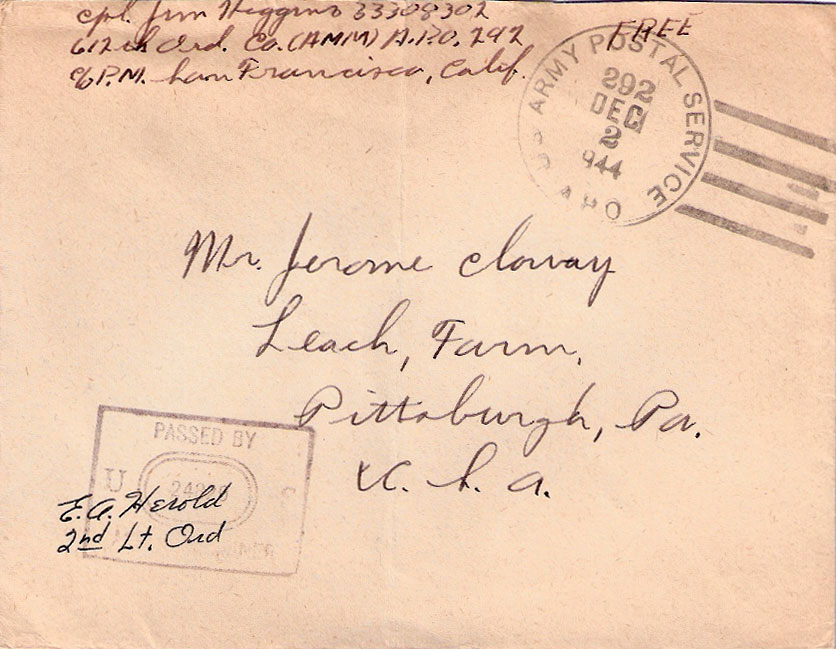 Cpl. Jim Higgins 33308302
612th Ord. Co. (AMM) A.P.O. 292
℅ P.M. San Francisco, Calif.
FREE
U.S. ARMY POSTAL SERVICE
APO
292
DEC
2
944
Mr. Jerome
Leach, Farm,
Pittsburgh, Pa.
U. S. A.
PASSED BY
U
E.A. Herold
2nd Lt. Ord